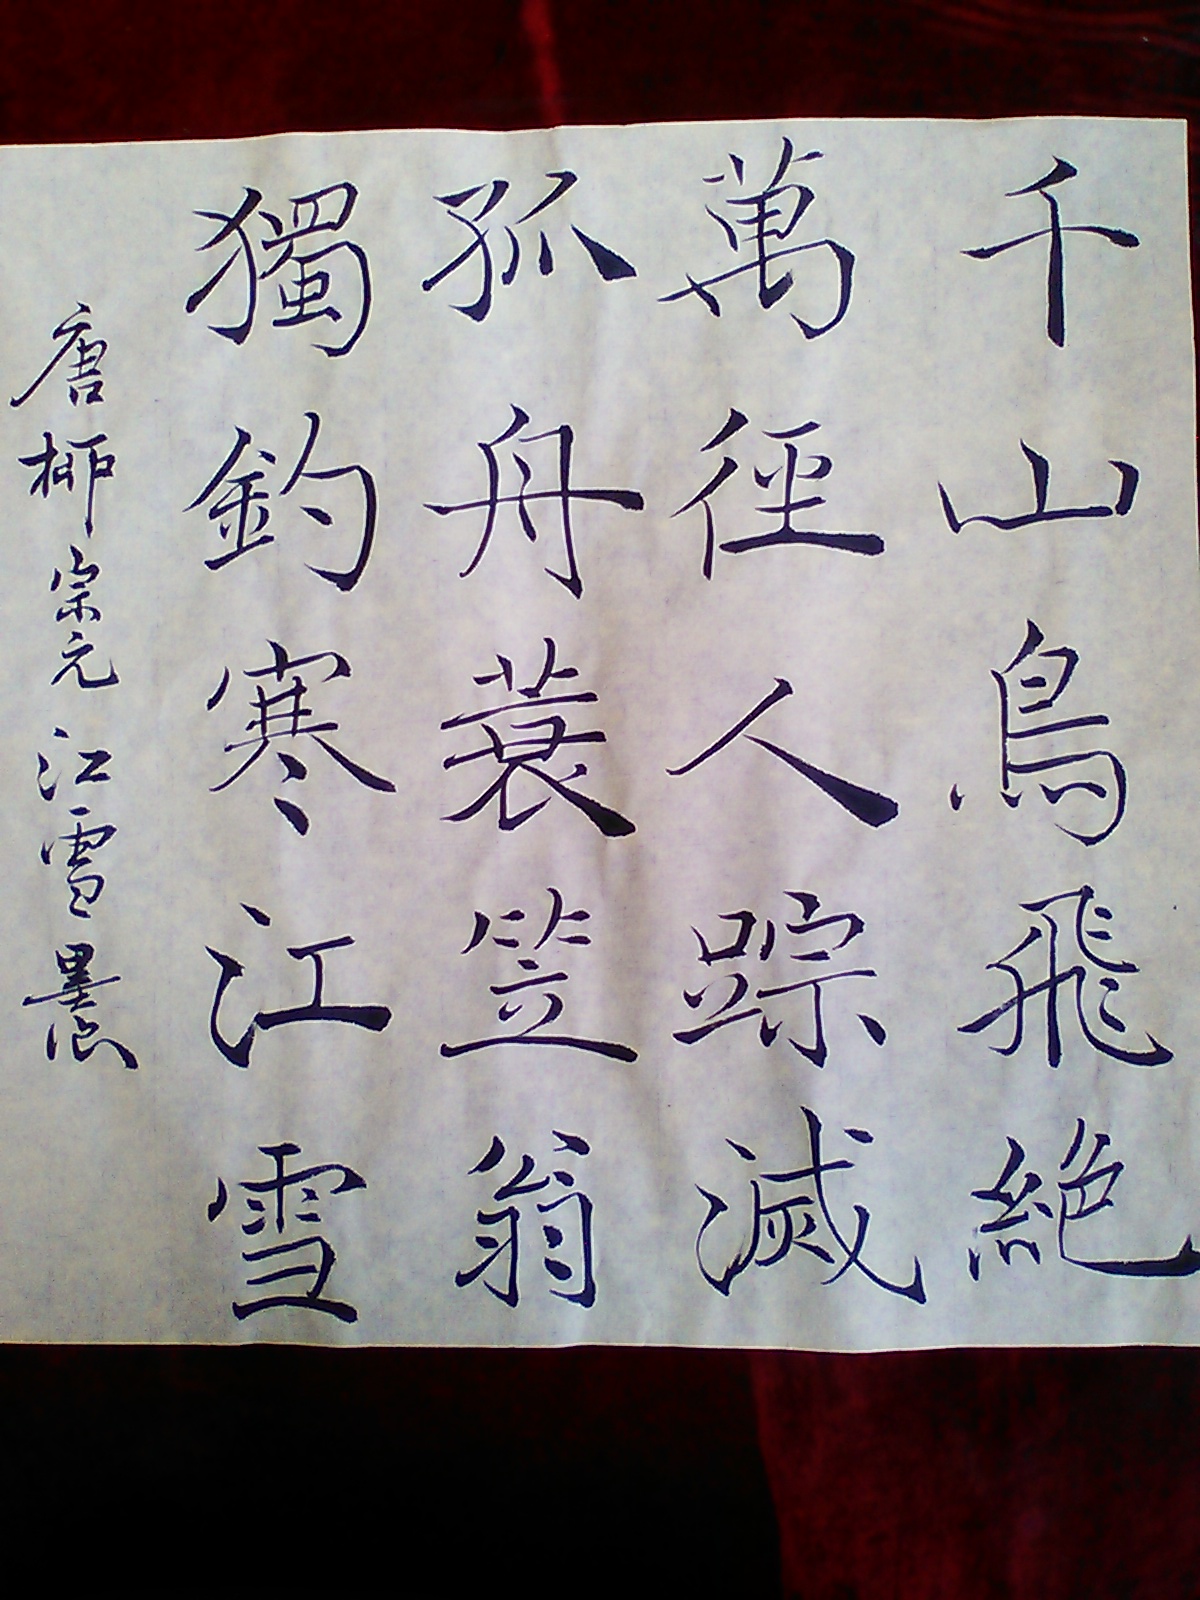 千山鳥飛絶
萬徑人踪滅
孤舟蓑笠翁
獨釣寒江雪
唐柳宗元江雪墨農